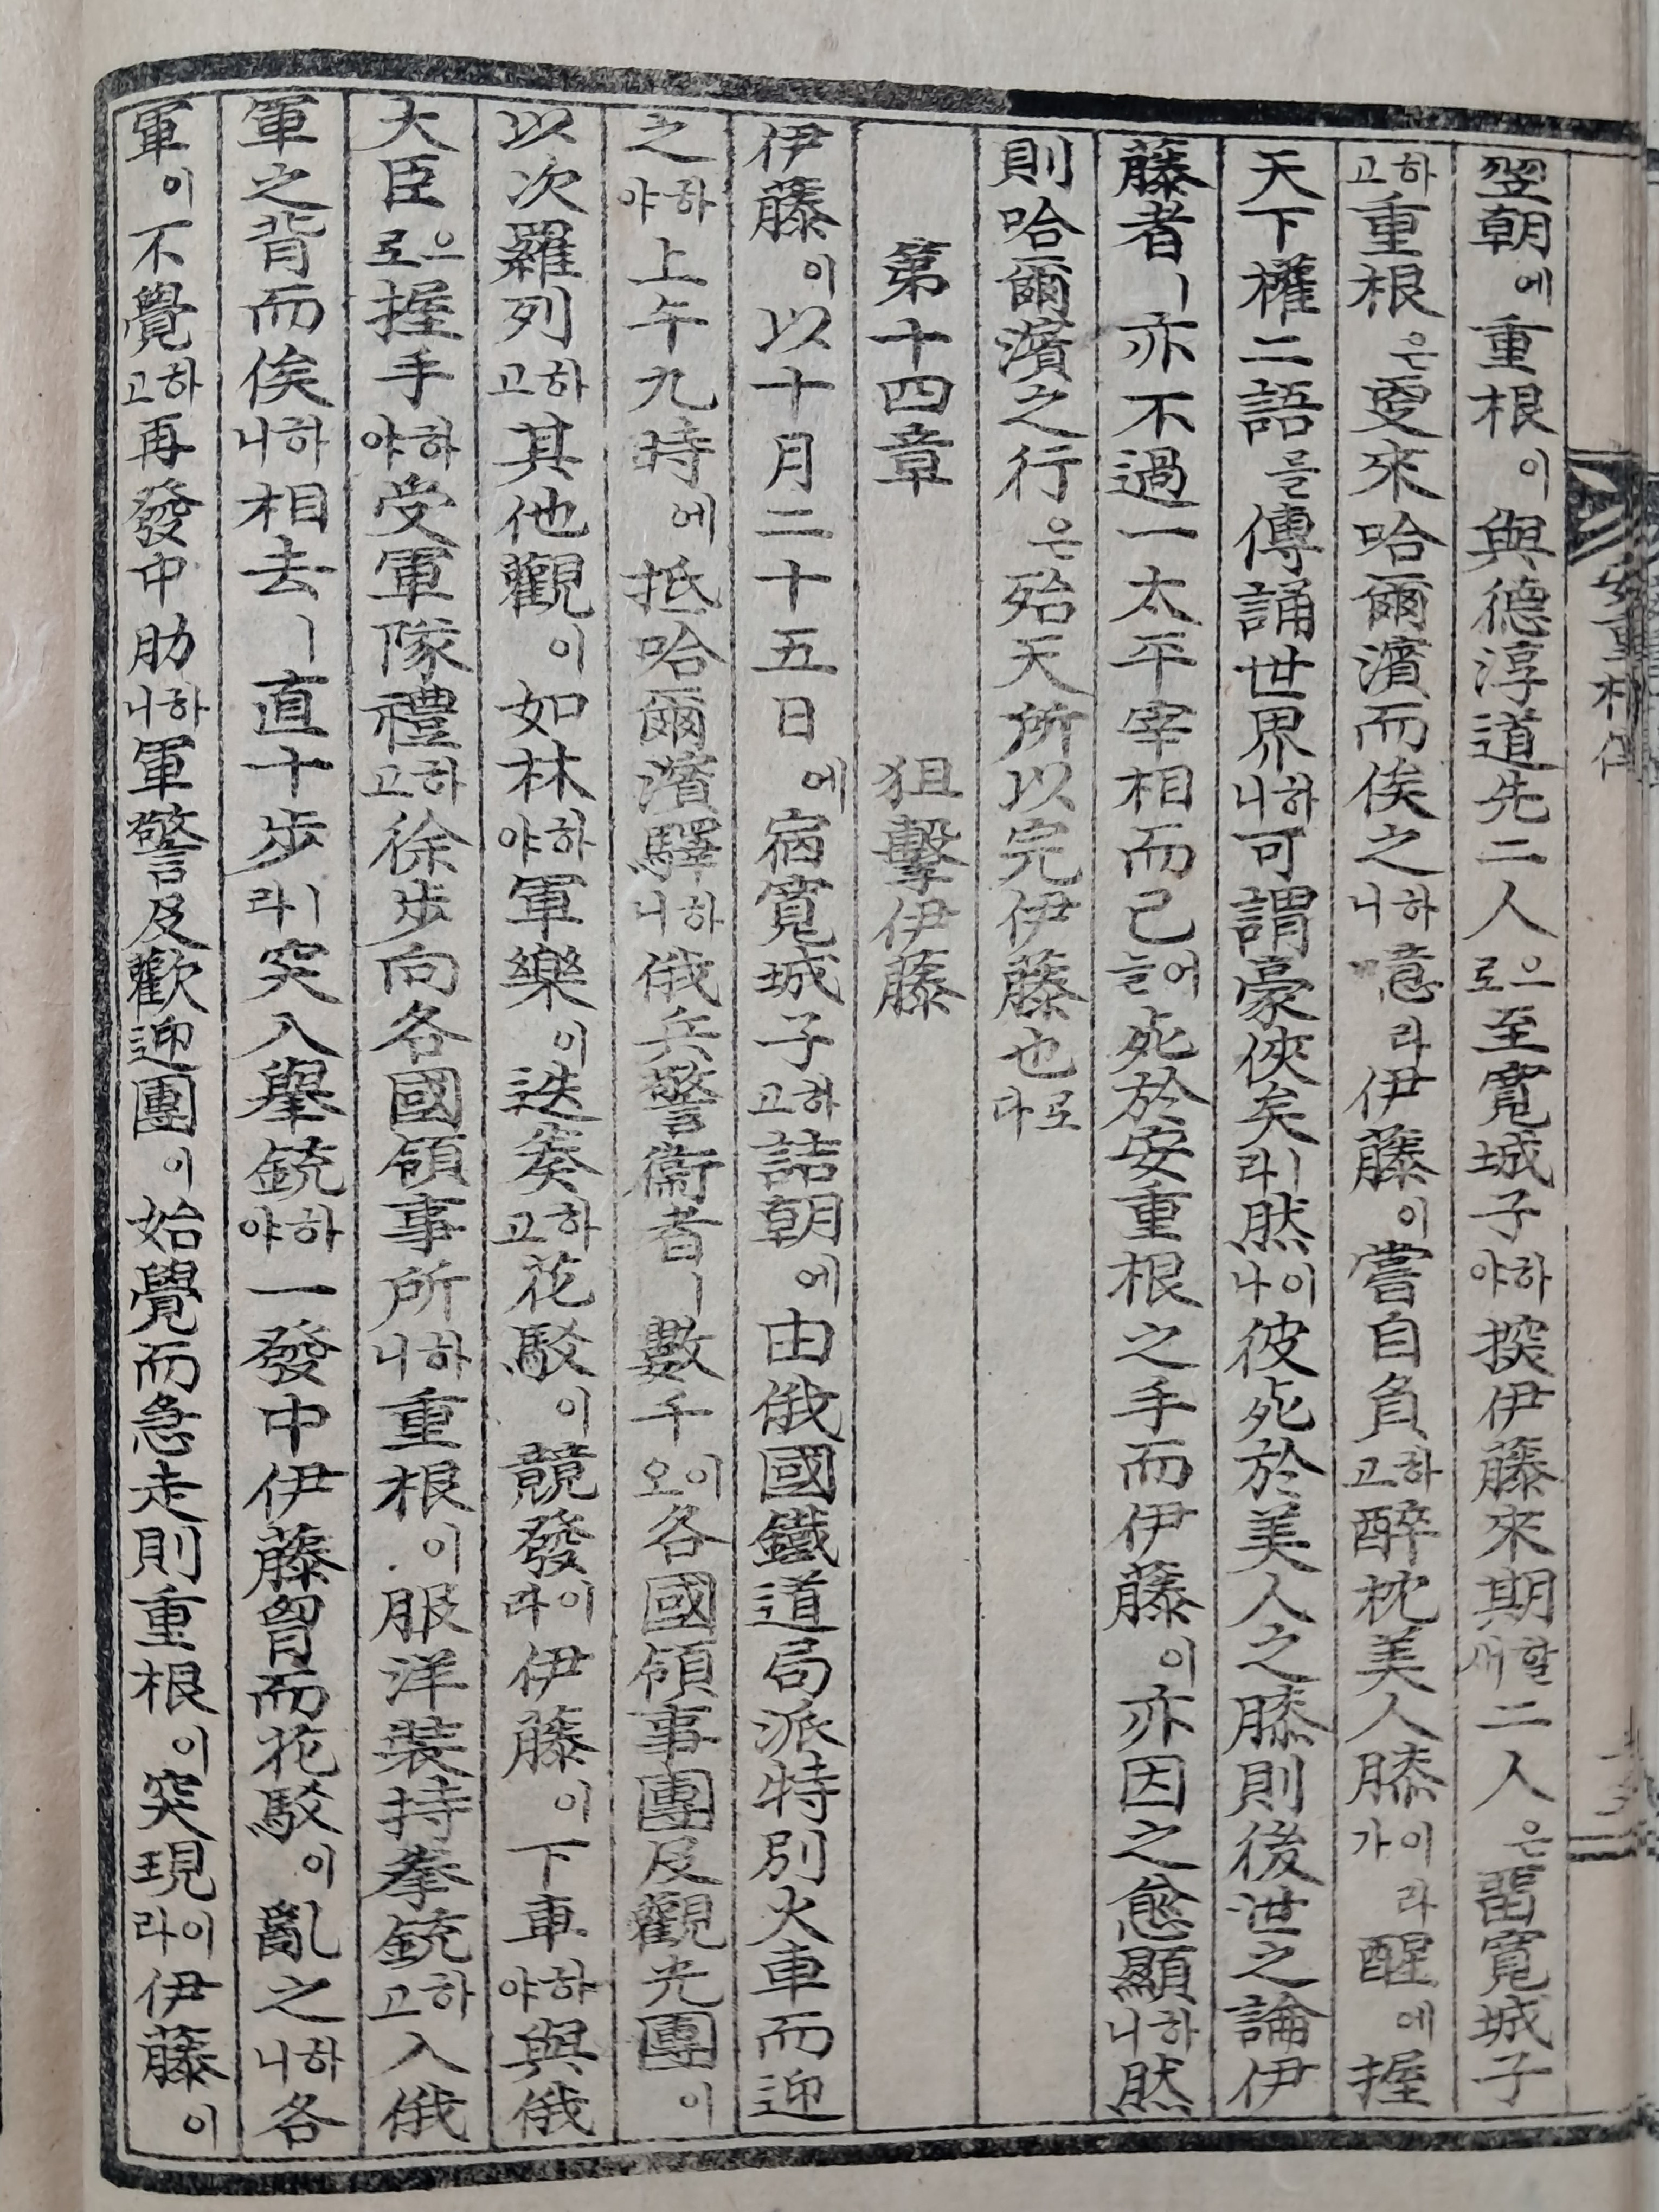 翌朝에重根이與德淳道先二人으로至寬城子하야探伊藤來期할새二人은留寬城子
하고重根은更來哈爾濱而俟之하니噫라伊藤이嘗自負하고醉枕美人膝이가라醒에握
天下權二語를傳誦世界하니可謂豪俠矣ㅣ라然이나彼死於美人之膝則後世之論伊
藤者ㅣ亦不過一太平宰相而已어늘死於安重根之手而伊藤이亦因之愈顯하니然
則哈爾濱之行은殆天所以完伊藤也로다
第十四章 狙擊伊藤
伊藤이以十月二十五日에宿寬城子하고詰朝에由俄國鐵道局派特別火車而迎
之하야上午九時에抵哈爾濱驛하니俄兵警衛者ㅣ數千이오各國領事團及觀光團이
以次羅列하고其他觀이如林하야軍樂이迭奏하고花駁이競發이라伊藤이下車하야與俄
大臣으로握手하야受軍隊禮하고徐步向各國領事所하니重根이服洋裝持拳銃하고入俄
軍之背而俟하니相去ㅣ直十步ㅣ라突入擧銃하야一發中伊藤胷而花駁이亂之하니各
軍이不覺하고再發中肋하니軍警及歡迎團이始覺而急走則重根이突現이라伊藤이
安重根傳